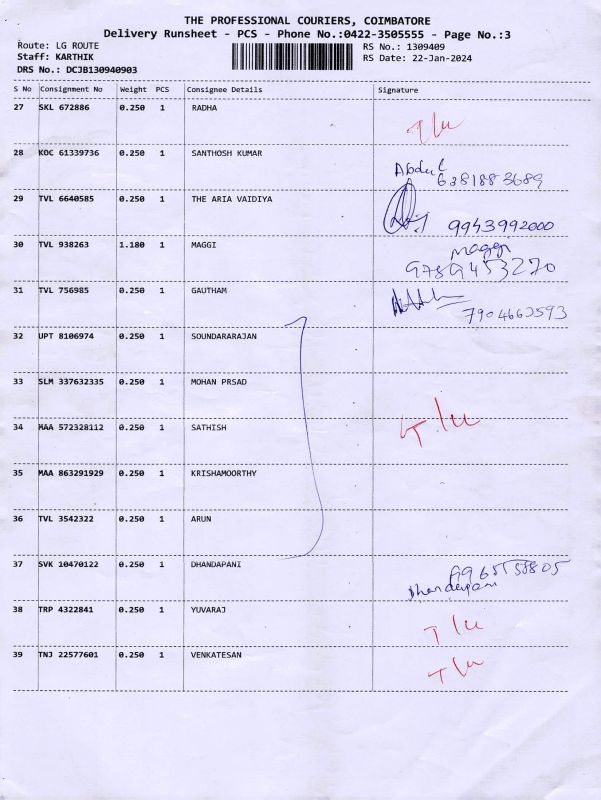 THE PROFESSIONAL COURIERS, COIMBATORE
Delivery Runsheet - PCS - Phone No.:0422-3505555 - Page No.:3
Route: LG ROUTE RS No.: 1309409
Staff: KARTHIK RS Date: 22-Jan-2024
DRS No.: DCJB130940903
S No Consignment No Weight PCS Consignee Details Signature
27 SKL 672886 0.250 1 RADHA
T/u
28 KOC 61339736 0.250 1 SANTHOSH KUMAR
Abdul
6381883689
29 TVL 6640585 0.250 1 THE ARIA VAIDIYA
9943992000
30 TVL 938263 1.180 1 MAGGI
Maggi
9789453270
31 TVL 756985 0.250 1 GAUTHAM
32 UPT 8106974 0.250 1 SOUNDARARAJAN
33 SLM 337632335 0.250 1 MOHAN PRSAD
34 MAA 572328112 0.250 1 SATHISH
T/u
35 MAA 863291929 0.250 1 KRISHAMOORTHY
36 TVL 3542322 0.250 1 ARUN
37 SVK 10470122 0.250 1 DHANDAPANI
Dhandapani
38 TRP 4322841 0.250 1 YUVARAJ
T/u
39 TNJ 22577601 0.250 1 VENKATESAN
T/u